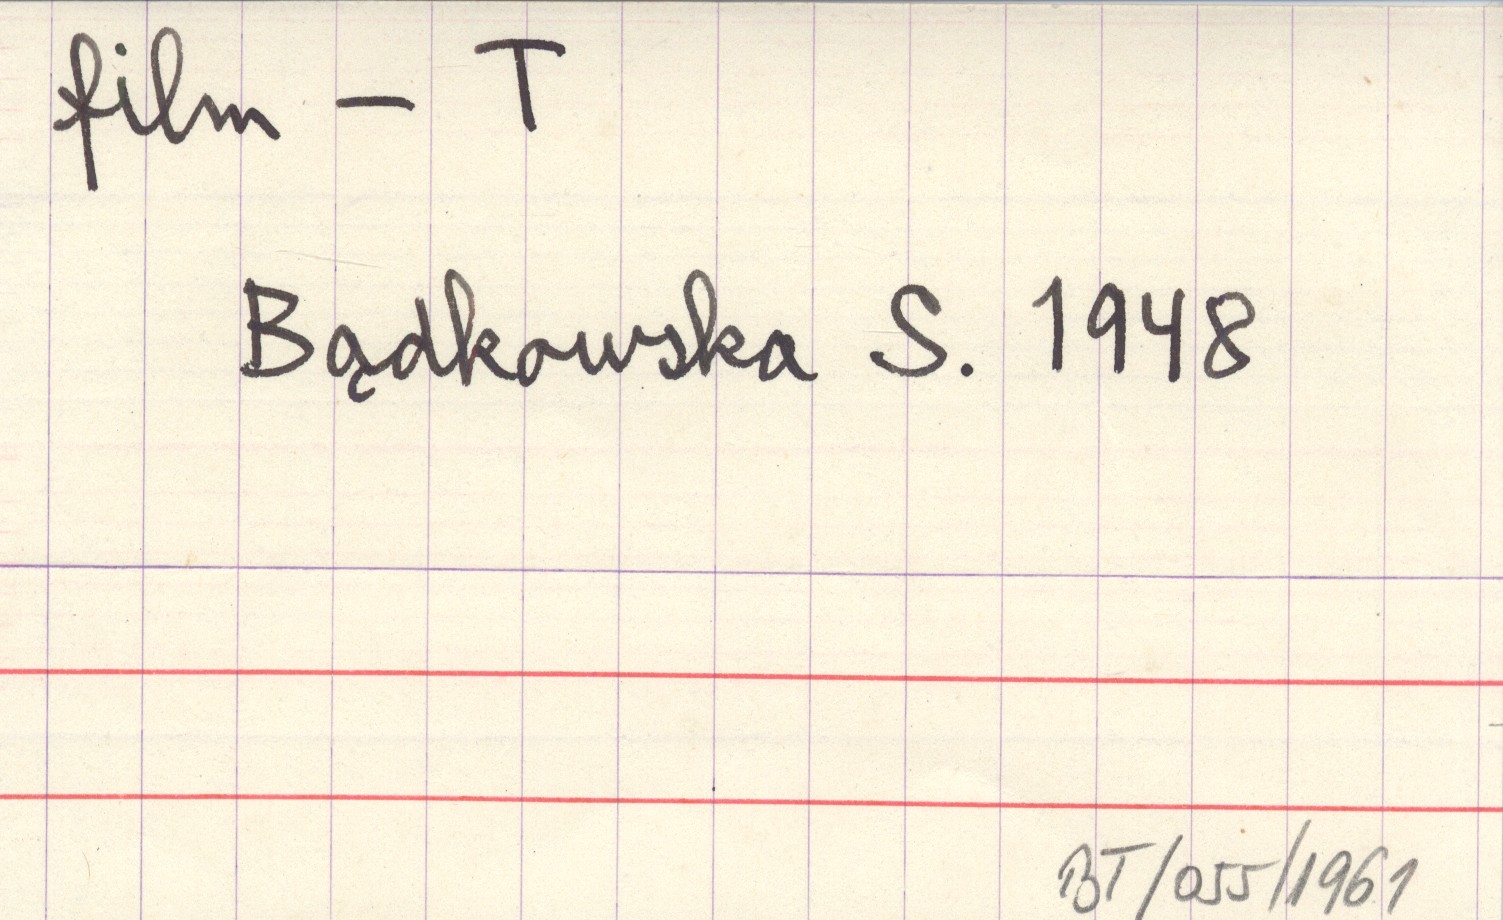 film – T
Bądkowska S. 1948
BT/055/1961